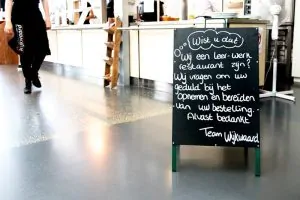 Wist u dat
Wij een leer-werk
restaurant zijn?
Wij vragen om uw
geduld bij het
opnemen en bereiden
van uw bestelling.
Alvast bedankt
Team Wijkwaard